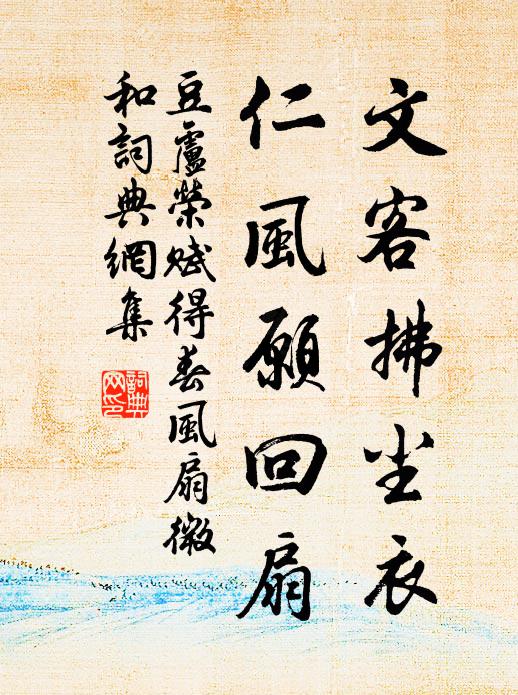 文客拂尘衣
仁風願回扇
豆盧榮賦得春風扇微
和詞典網集
詞典
网印